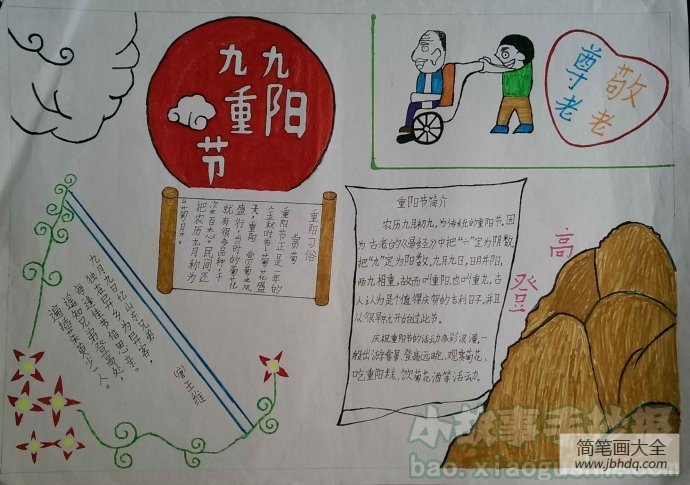 九九
重阳
节
尊老
敬老
重阳习俗
赏菊
重阳节正是一年的
金秋时节,菊花盛
盛行,当时的菊花
就有很多品种,千
姿百态。民间还
把农历九月称为
"菊月"。
九月九日忆山东兄弟
独在异乡为异客,
每逢佳节倍思亲。
遥知兄弟登高处,
遍插茱萸少一人。
唐 王维
重阳节简介
农历九月初九,为传统的重阳节。因
为古老的《易经》中把"六"定为阴数,
把"九"定为阳数,九月九日,日月并阳,
两九相重,故而叫重阳,也叫重九,古
人认为是个值得庆贺的吉利日子,并且
从很早就开始过此节。
庆祝重阳节的活动多彩浪漫,一
般出游赏景、登高远眺、观赏菊花、
吃重阳糕、饮菊花酒等活动。
登高
小故事手抄报
bao.xiaogushi.com
简笔画大全
www.jbhdq.com